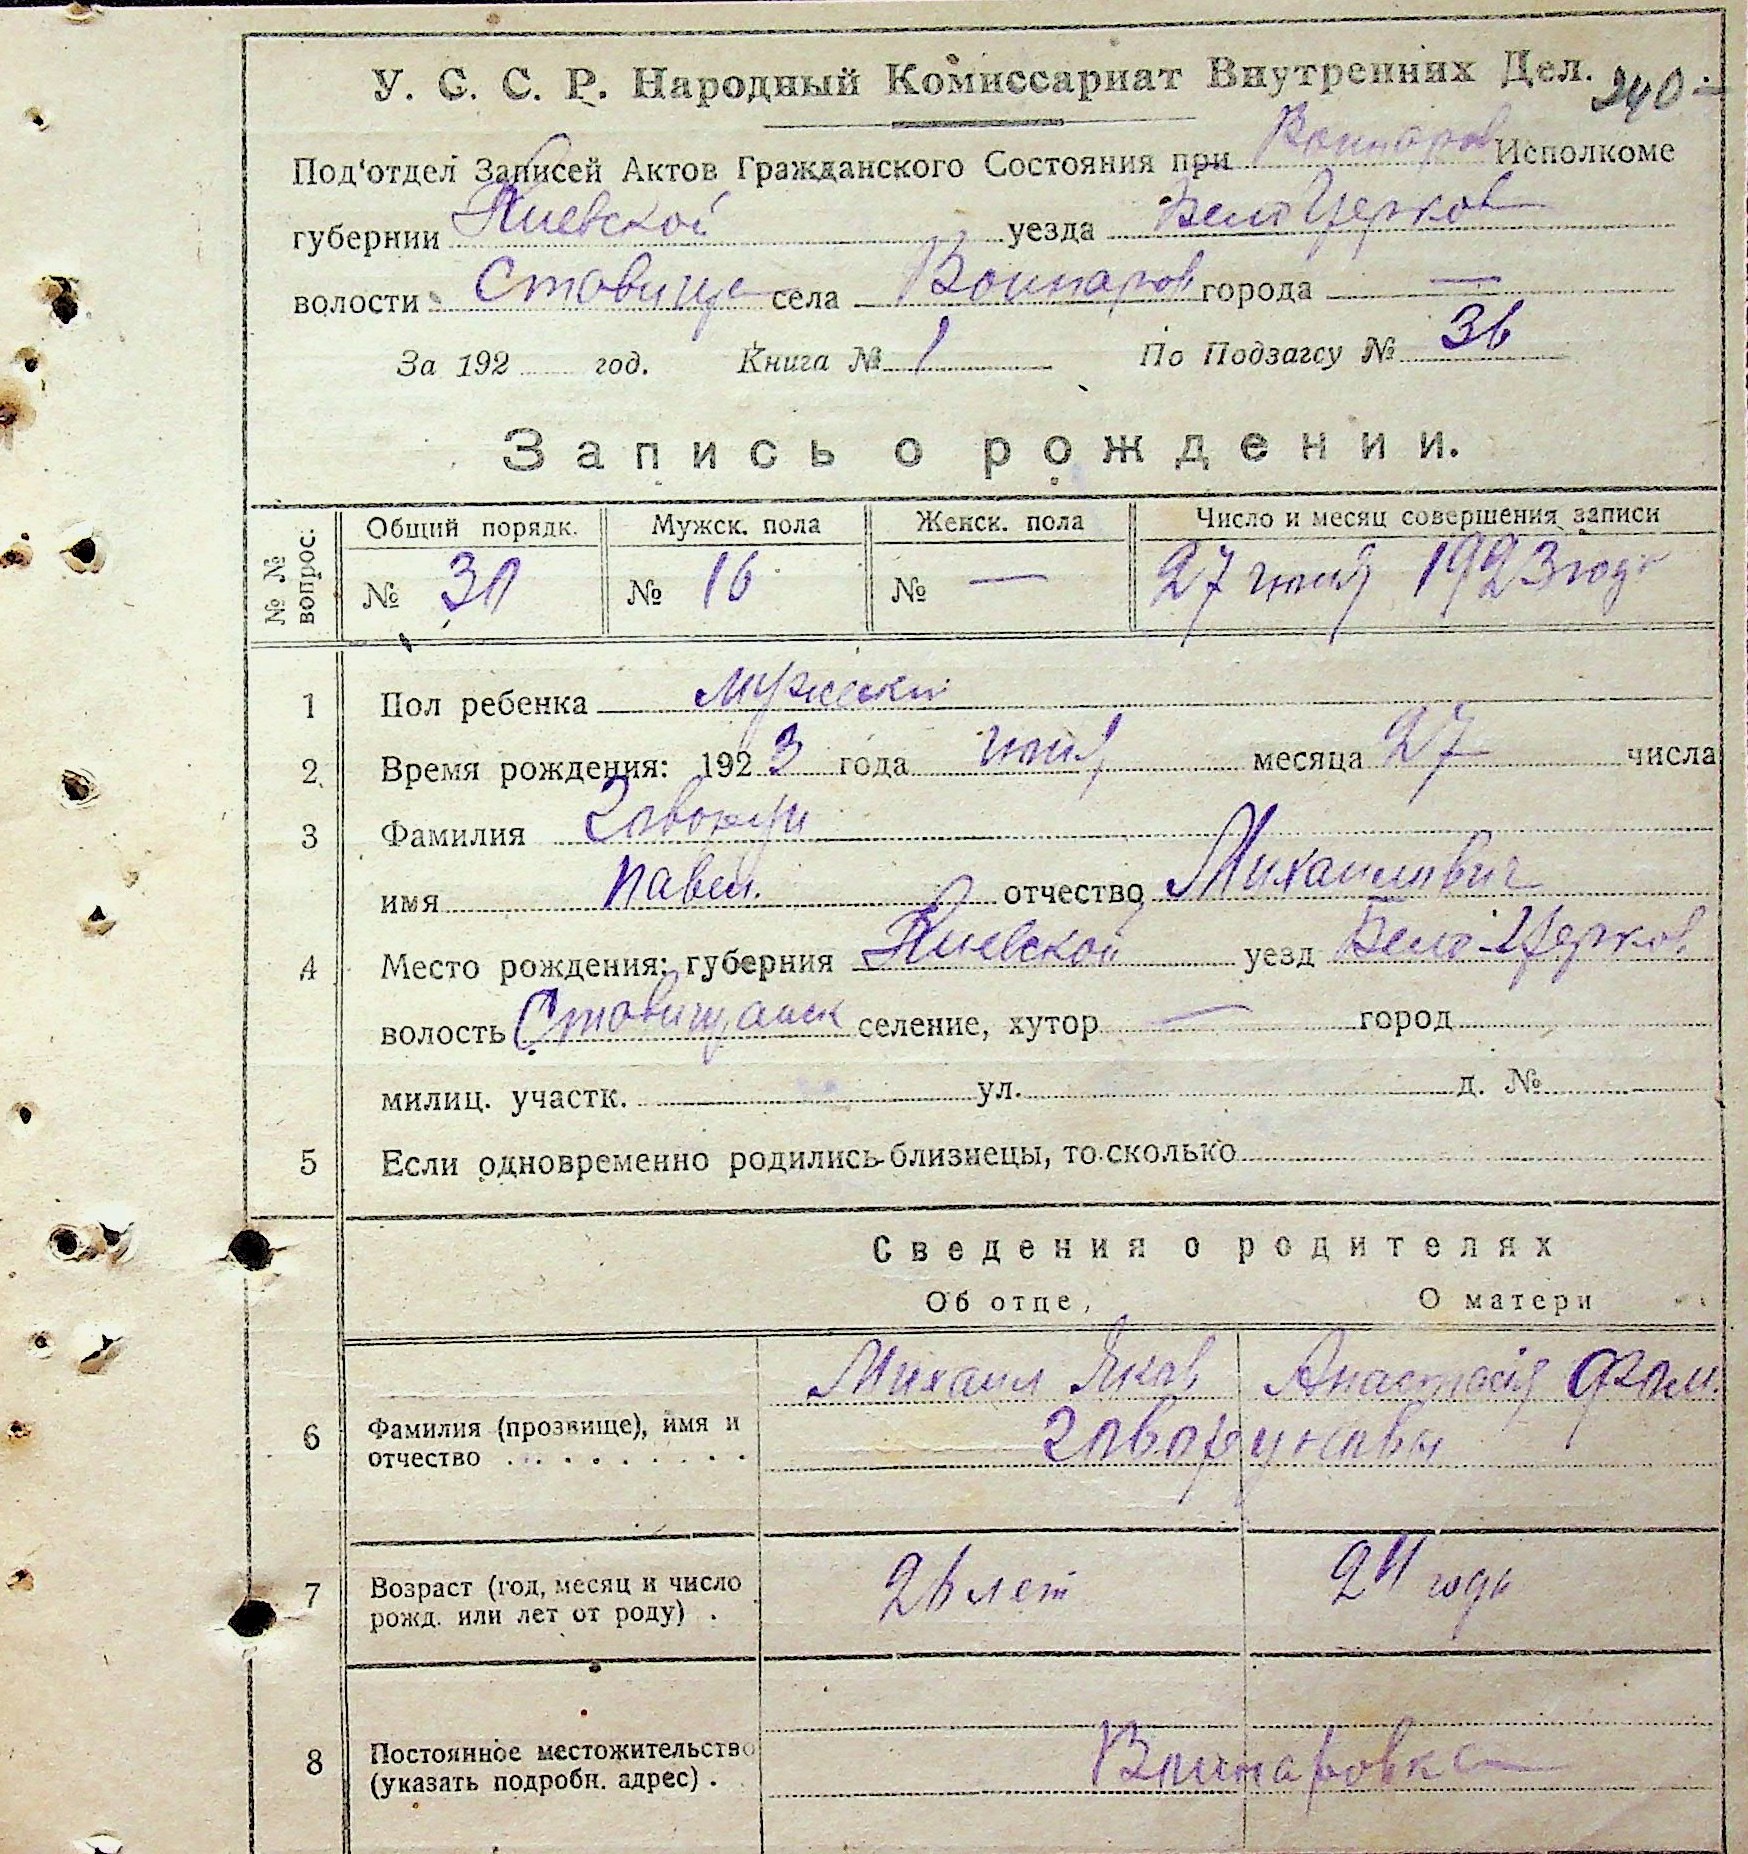 У. С. С. Р. Народный Комиссариат Внутренних Дел. 240
Под'отдел Записей Актов Гражданского Состояния при Исполкоме
губернии Киевской уезда Бело Церков
волости Ставище села города —
За 192 год. Книга № 1 По Подзагсу № 36
Запись о рождении.
№ № вопрос. Общий порядк. Мужск. пола Женск. пола Число и месяц совершения записи
№ 30 № 16 № — 27 1923 года
1 Пол ребенка мужески
2 Время рождения: 1923 года месяца 27 числа
3 Фамилия Говорун
имя Павел. отчество Михаилович
4 Место рождения: губерния Киевской уезд Бело-Церков
волость Ставищанск селение, хутор — город
милиц. участк. ул. д. №
5 Если одновременно родились близнецы, то сколько
Сведения о родителях
Об отце, О матери
Михаил Яков Анастасия
6 Фамилия (прозвище), имя и отчество Говоруновы
7 Возраст (год, месяц и число рожд. или лет от роду) . 26 лет 24 года
8 Постоянное местожительство (указать подробн. адрес) .